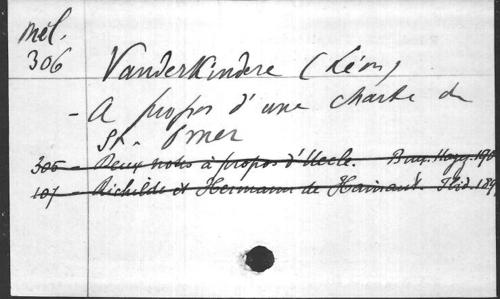 Mél.
306 Vanderkindere (Léon)
- A propos d'une charte de
St. Omer
305 - Deux notes à propos d'Uccle. Brux. Hayez. 190
107 - Richilde et Hermann de Hainaut. Ibid. 189